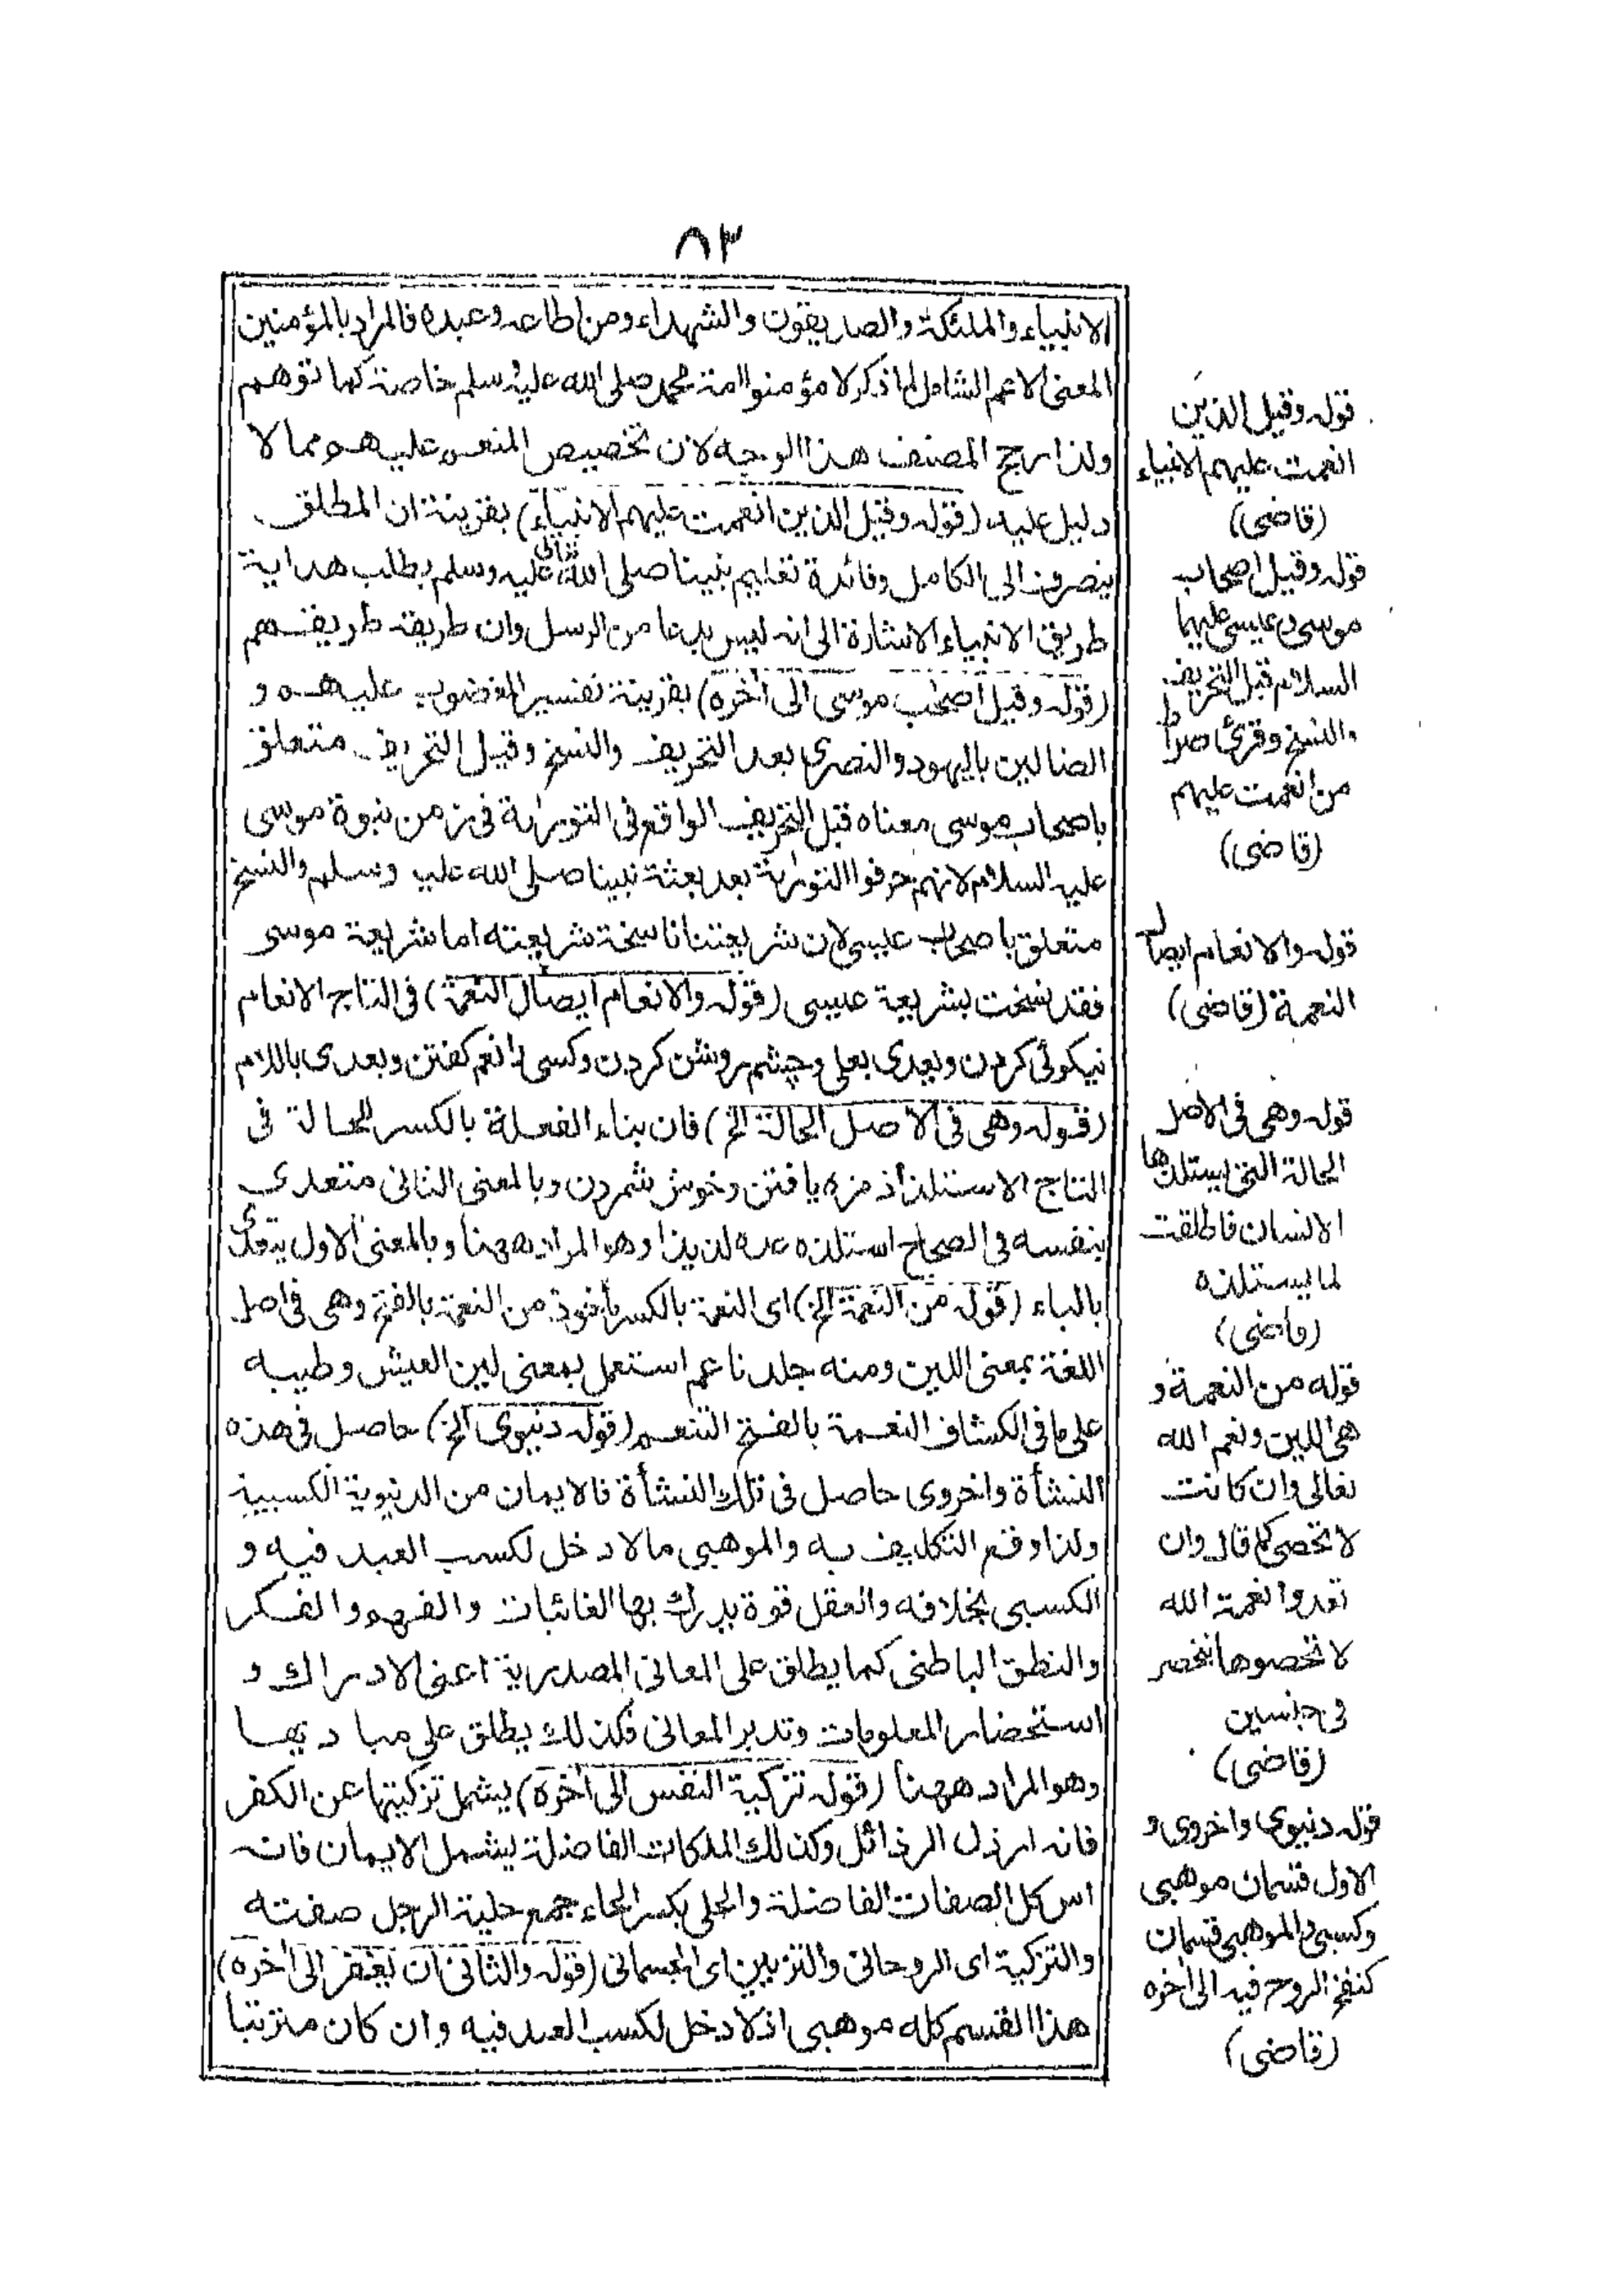 ٨٣
الانبياء والملئكة والصديقون والشهداء ومن اطاعه وعبده فالمراد بالمؤمنين
المعنى الاعم الشامل لما ذكر لا مؤمنوا امة محمد صلى الله عليه وسلم خاصة كما توهم
ولذا رجح المصنف هذا الوجه لان تخصيص المنعم عليهم مما لا
دليل عليه (قوله وقيل الذين انعمت عليهم الانبياء) بقرينة ان المطلق
ينصرف الى الكامل وفائدة تعليم نبينا صلى الله تعالى عليه وسلم بطلب هداية
طريق الانبياء الاشارة الى انه ليس بدعا من الرسل وان طريقه طريقهم
(قوله وقيل اصحٰب موسى الى اٰخره) بقرينة تفسير المغضوب عليهم و
الضالين باليهود والنصرى بعد التحريف والنسخ وقبل التحريف متعلق
باصحاب موسى معناه قبل التحريف الواقع فى التورٰية فى زمن نبوة موسى
عليه السلام لانهم حرفوا التورٰية بعد بعثة نبينا صلى الله عليه وسلم والنسخ
متعلق باصحاب عيسى لان شريعتنا ناسخة شريعته اما شريعة موسى
فقد نسخت بشريعة عيسى (قوله والانعام ايصال النعمة) فى التاج الانعام
نيكوئى كردن ويعدى بعلى وچشم روشن كردن وكسى را نعم كفتن ويعدى باللام
(قوله وهى فى الاصل الحالة الخ) فان بناء الفعلة بالكسر للحالة فى
التاج الاستلذاذ مزه يافتن وخوش شمردن وبالمعنى الثانى متعدى
بنفسه فى الصحاح استلذه عده لذيذا وهو المراد ههنا وبالمعنى الاول يتعدى
بالباء (قوله من النعمة الخ) اى النعمة بالكسر مأخوذ من النعمة بالفتح وهى فى اصل
اللغة بمعنى اللين ومنه جلد ناعم استعمل بمعنى لين العيش وطيبه
على ما فى الكشاف النعمة بالفتح التنعم (قوله دنيوى الخ) حاصل فى هذه
النشأة واخروى حاصل فى تلك النشأة فالايمان من الدنيوية الكسبية
ولذا وقع التكليف به والموهبى ما لا دخل لكسب العبد فيه و
الكسبى بخلافه والعقل قوة يدرك بها الغائبات والفهم والفكر
والنطق الباطنى كما يطلق على المعانى المصدرية اعنى الادراك و
استحضار المعلومات وتدبر المعانى فكذلك يطلق على مباديها
وهو المراد ههنا (قوله تزكية النفس الى اٰخره) يشمل تزكيتها عن الكفر
فانه ارذل الرذائل وكذلك الملكات الفاضلة يشمل الايمان فانه
اس كل الصفات الفاضلة والحلى بكسر الحاء جمع حلية الرجل صفته
والتزكية اى الروحانى والتزيين اى الجسمانى (قوله والثانى ان يغفر الى اٰخره)
هذا القسم كله موهبى اذ لا دخل لكسب العبد فيه وان كان مترتبا
قوله وقيل الذين
انعمت عليهم الانبياء
(قاضى)
قوله وقيل اصحاب
موسى وعيسى عليهما
السلام قبل التحريف
والنسخ وقرئ صراط
من انعمت عليهم
(قاضى)
قوله والانعام ايصال
النعمة (قاضى)
قوله وهى فى الاصل
الحالة التى يستلذها
الانسان فاطلقت
لما يستلذه
(قاضى)
قوله من النعمة و
هى اللين ونعم الله
تعالى وان كانت
لا تحصى كما قال وان
تعدوا نعمة الله
لا تحصوها تنحصر
فى جنسين
(قاضى)
قوله دنيوى واخروى و
الاول قسمان موهبى
وكسبى والموهبى قسمان
كنفخ الروح فيه الى اٰخره
(قاضى)